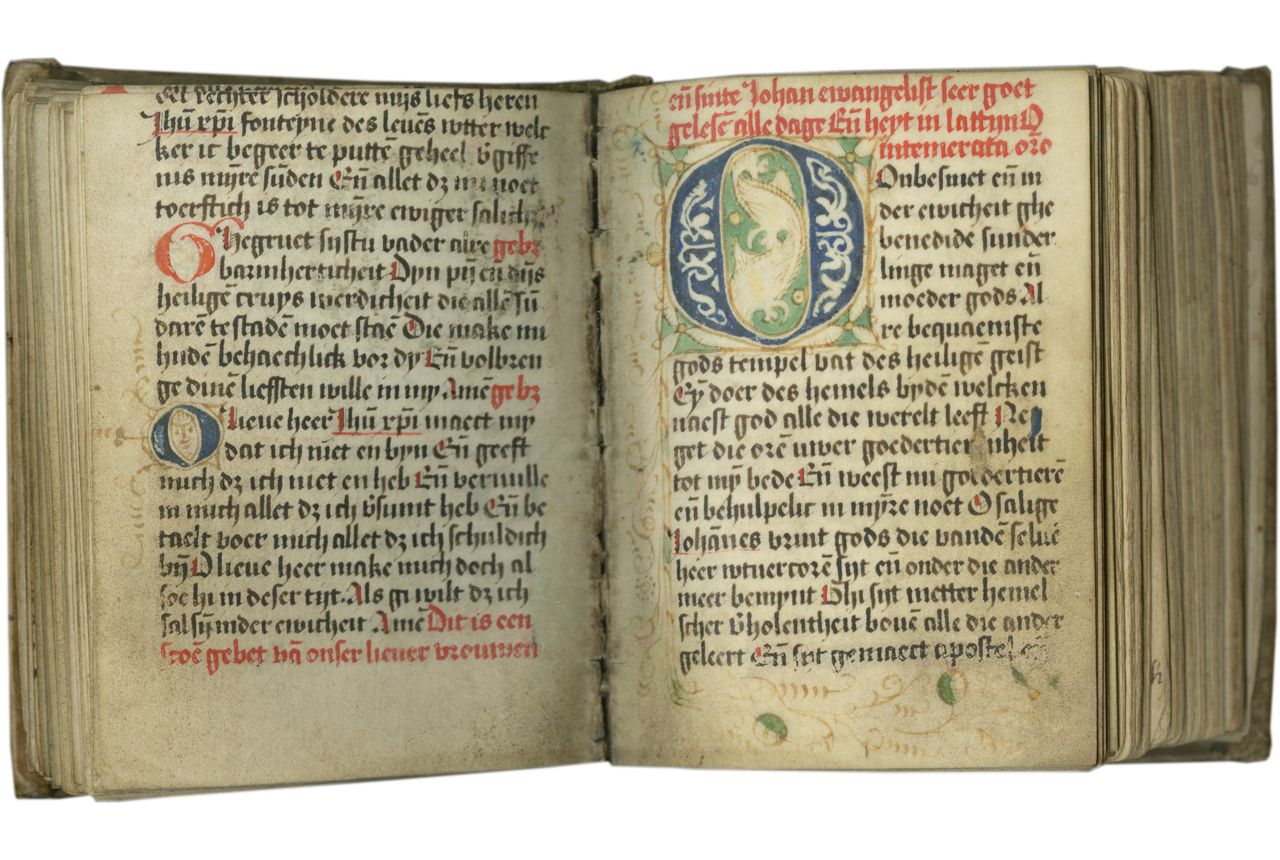 der rechter scholdere mijs liefs heren
Jhū xp̄i fonteyne des leuēs wtter welc
ker ic begeer te puttē geheel v̄giffe
nis mijre sūden Eñ allet dz mi noet
toerftich is tot mijre ewiger salich
Ghegruet sijstu vader alre gebz
barmherticheit Dyn pijē eñ dijs
heiligē cruys werdicheit die allē sū
darē te stadē moet staē Die make mi
hudē behaechlick vor dy Eñ volbren
ge dinē liefften wille in my Amē gebz
O lieue heer Jhū xp̄i maect my
dat ich niet en byn Eñ geeft
mich dz ich niet en heb Eñ vernulle
in mich allet dz ich v̄sumt heb Eñ be
taelt voer mich allet dz ich schuldich
byn̄ O lieue heer make mich doch al
soe hi in deser tijt. Als gi wilt dz ich
sal sijn inder ewicheit Amē Dit is een
scoē gebet vā onser lieuer vrouwen
eñ sinte Johan ewangelist seer goet
gelesē alle dage Eñ heyt in lattijn O
intemerata orō
Onbesmet eñ in
der ewicheit ghe
benedide sunder
linge maget eñ
moeder gods Al
re bequaemste
gods tempel vat des heiligē geist
Eȳ doer des hemels bydē welcken
naest god alle die werelt leeft Ne
get die orē uwer goedertierenheit
tot mȳ bede Eñ weest mi goedertierē
eñ behulpelic in mȳre noet O salige
Johānes vrint gods die vandē seluē
heer wtuercorē sijt eñ onder die ander
meer bemynt Ghi sijt metter hemel
scher v̄holentheit bouē alle die ander
geleert Eñ sijt gemaect apostel eñ